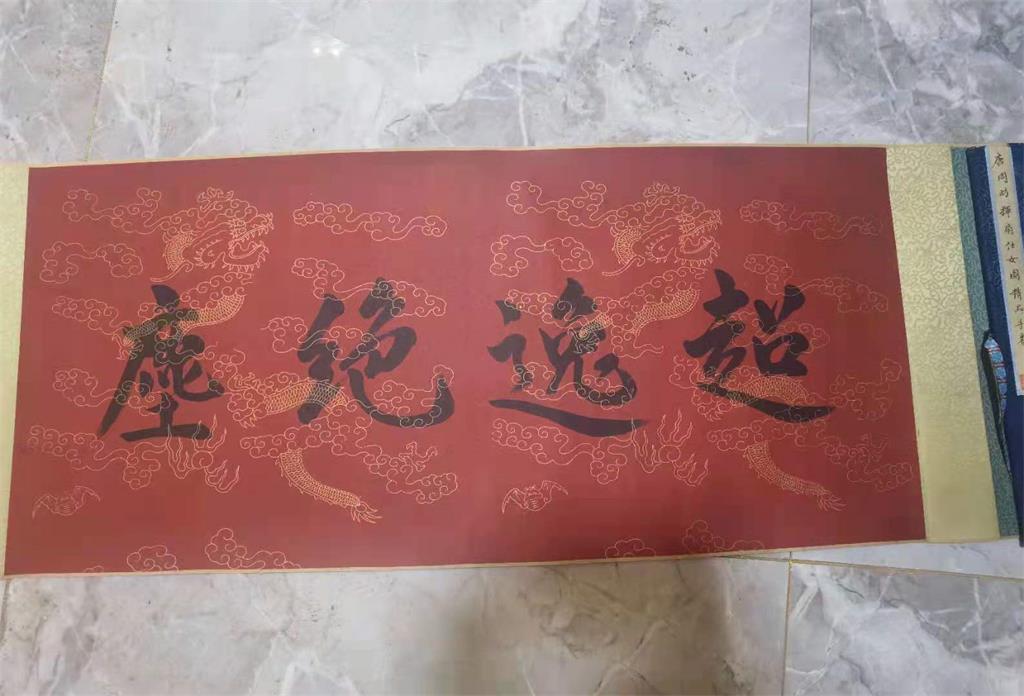 超逸絕塵
唐周昉揮扇仕女圖精品手卷